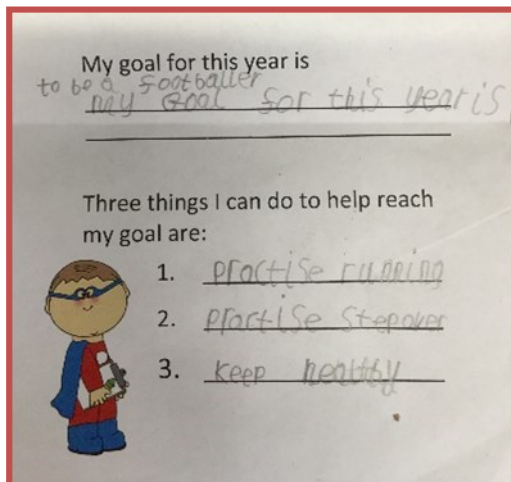 My goal for this year is
to be a footballer
my Gool for this year is
Three things I can do to help reach
my goal are:
1. practise running
2. practise Stepover
3. keep healthy